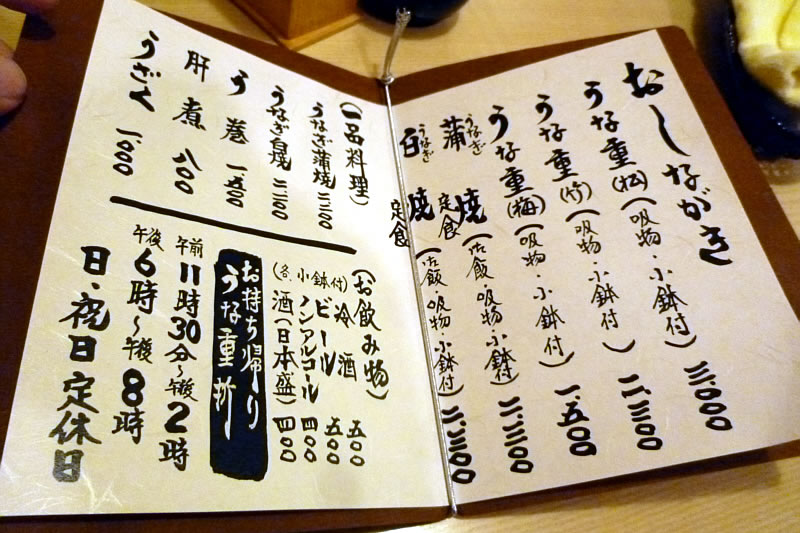 おしながき
うな重(松)(吸物・小鉢付) 三、〇〇〇
うな重(竹)(吸物・小鉢付) 二、三〇〇
うな重(梅)(吸物・小鉢付) 一、五〇〇
うなぎ蒲焼定食(御飯・吸物・小鉢付) 二、三〇〇
うなぎ白焼定食(御飯・吸物・小鉢付) 二、三〇〇
(一品料理)
うなぎ蒲焼
うなぎ白焼
う巻
肝煮 八〇〇
うざく 一、〇〇〇
(お飲み物)
(各、小鉢付)
冷酒 五〇〇
ビール 五〇〇
ノンアルコール 四〇〇
酒(日本盛) 四〇〇
お持ち帰り
うな重折
午前11時30分〜午後2時
午後6時〜午後8時
日・祝日定休日